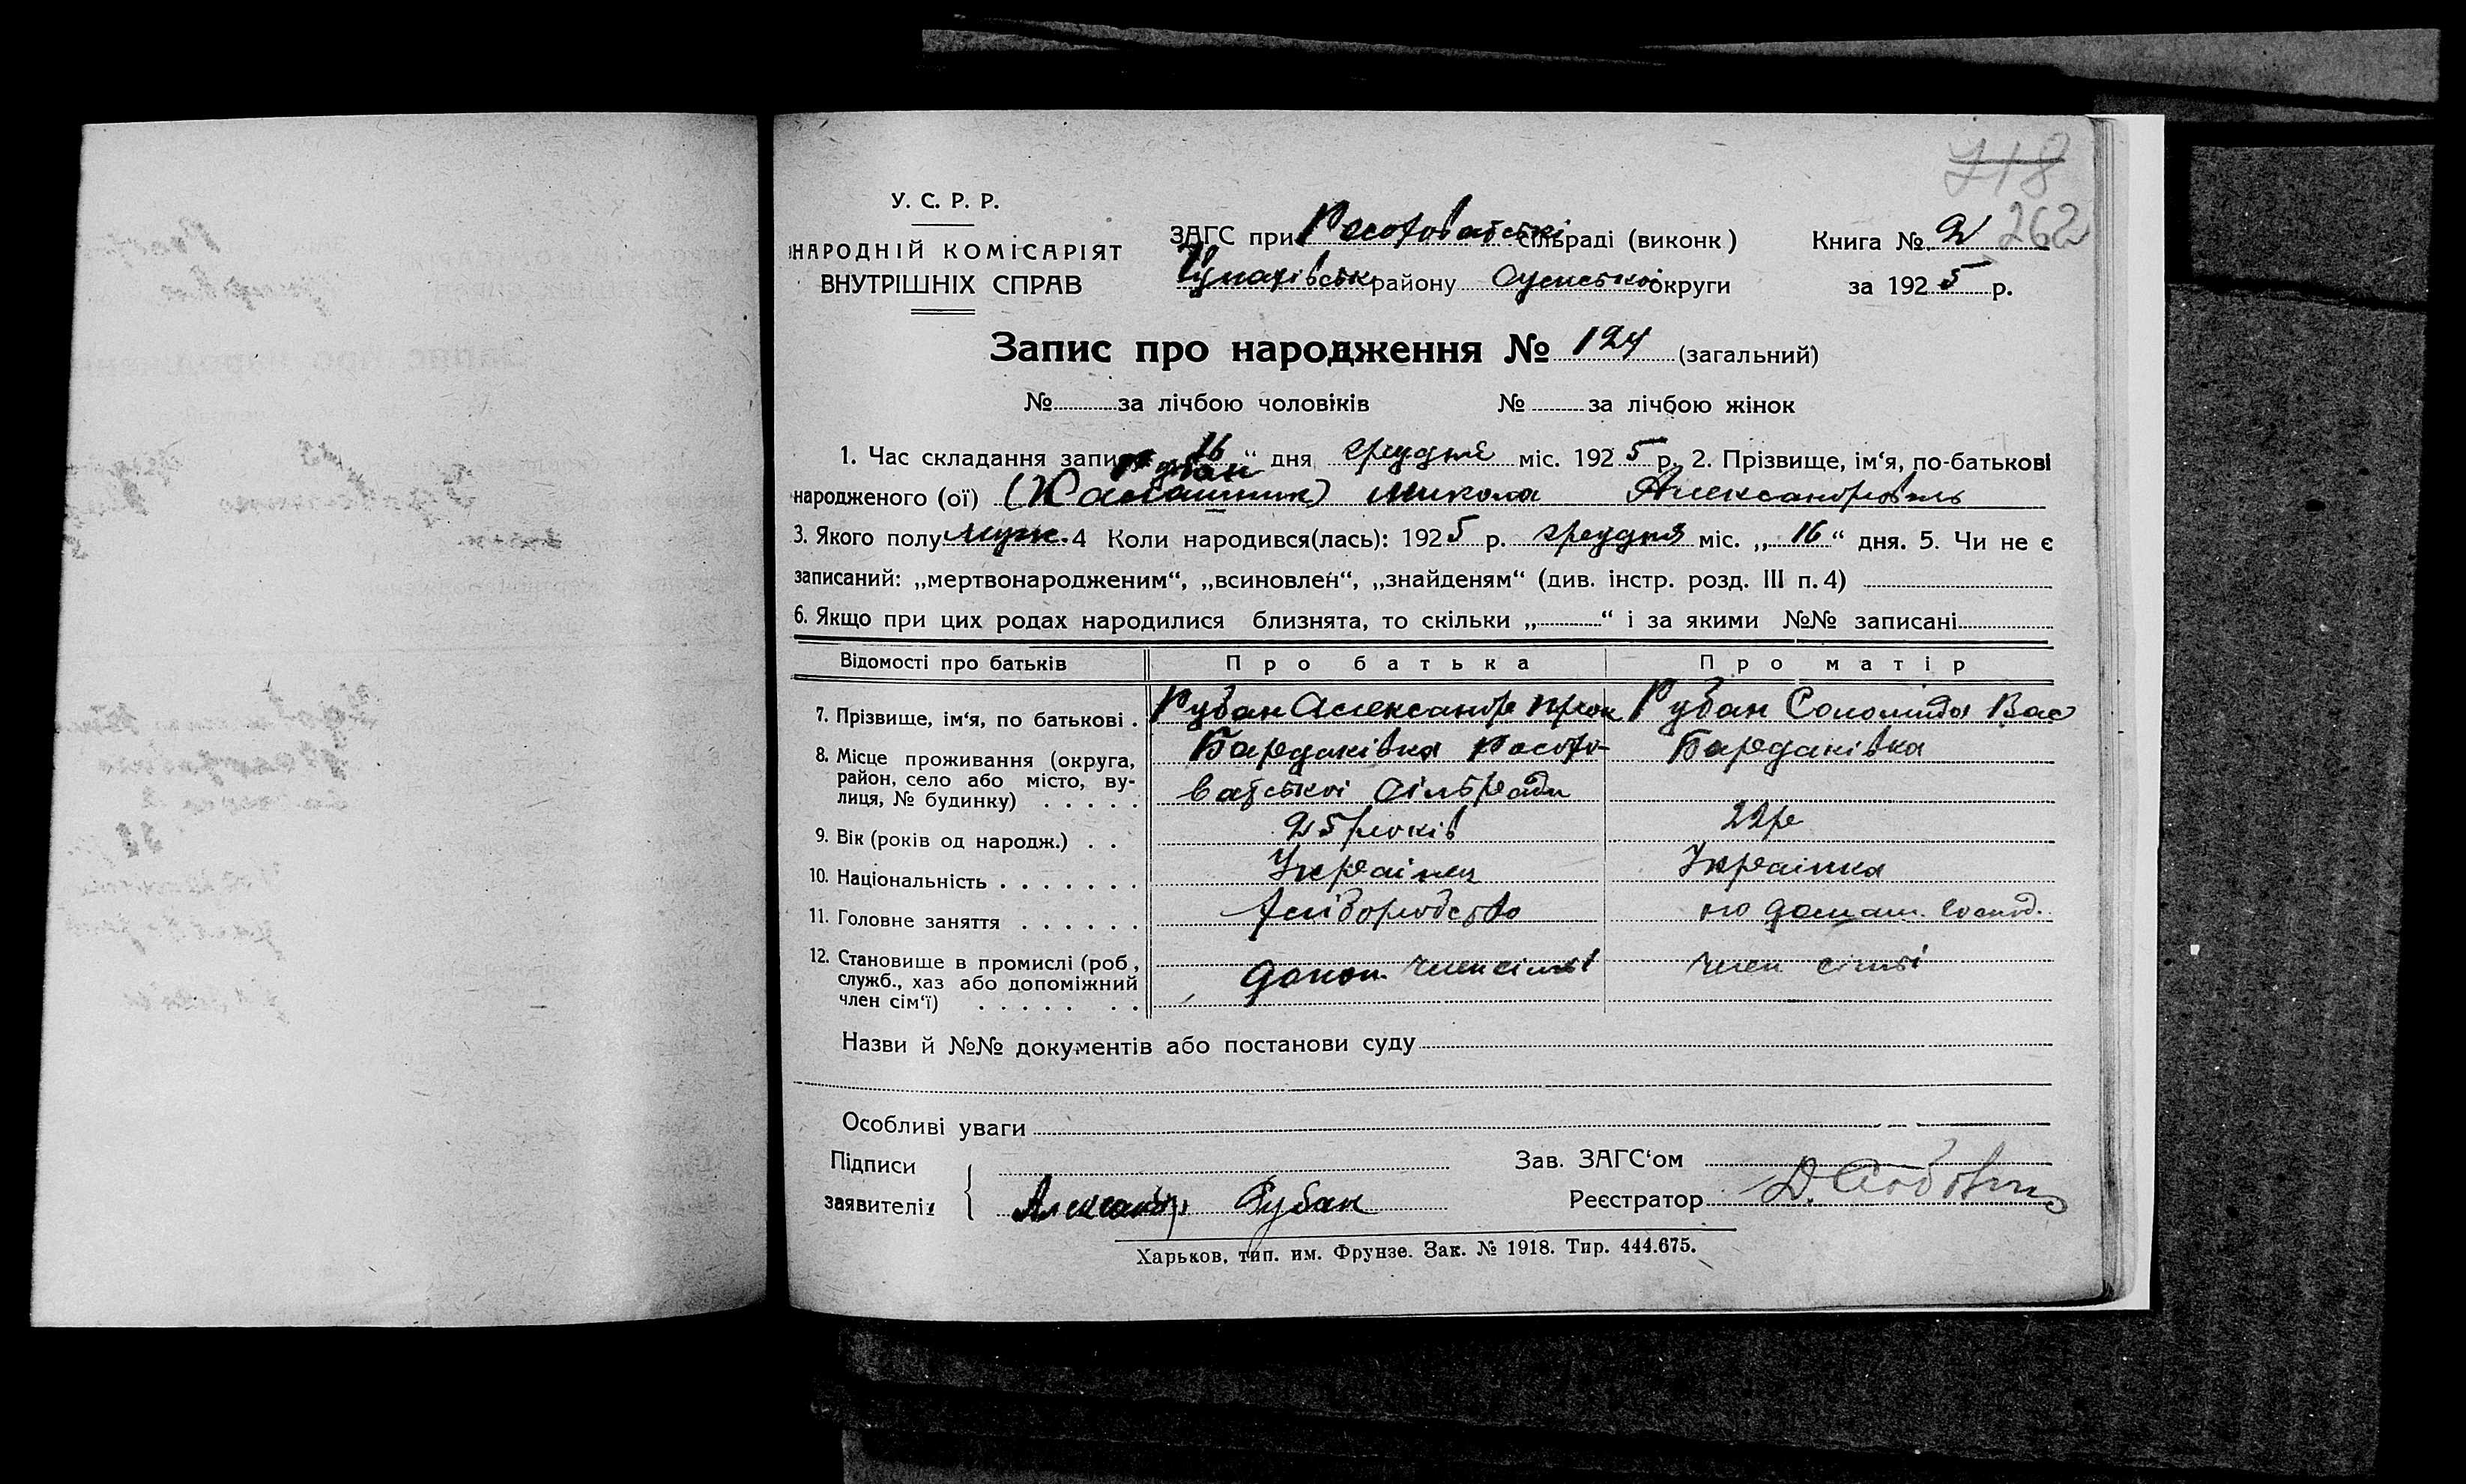 718
У. С. Р. Р.
НАРОДНІЙ КОМІСАРІЯТ
ВНУТРІШНІХ СПРАВ
ЗАГС при сільраді (виконк)
району Сумської округи
Книга № 2 262
за 1925 р.
Запис про народження № 124 (загальний)
№ за лічбою чоловіків № за лічбою жінок
1. Час складання запису 16 “ дня грудня міс. 1925 р. 2. Прізвище, ім‘я, по-батькові
Рубан
народженого (ої) Микола Александрович
3. Якого полу муж. 4 Коли народився(лась): 1925 р. грудня міс. „ 16 “ дня. 5. Чи не є
записаний: „мертвонародженим“, „всиновлен“, „знайденям“ (див. інстр. розд. III п. 4)
6. Якщо при цих родах народилися близнята, то скільки „ “ і за якими №№ записані
Відомості про батьків Про батька Про матір
7. Прізвище, ім‘я, по батькові . Рубан Александр Прок Рубан Соломида Вас
8. Місце проживання (округа, район, село або місто, вулиця, № будинку) . . . . . Бардаківка сільради Бардаківка
9. Вік (років од народж.) . . 25 років 22 р
10. Національність . . . . . . . Українец Українка
11. Головне заняття . . . . . . хліборобство по домаш. господ.
12. Становище в промислі (роб, служб., хаз або допоміжний член сім‘ї) . . . . . . . допом. член сімьі член сімьі
Назви й №№ документів або постанови суду
Особливі уваги
Підписи
заявителів
Александр Рубан
Зав. ЗАГС‘ом
Реєстратор
Харьков, тип. им. Фрунзе. Зак. № 1918. Тир. 444.675.